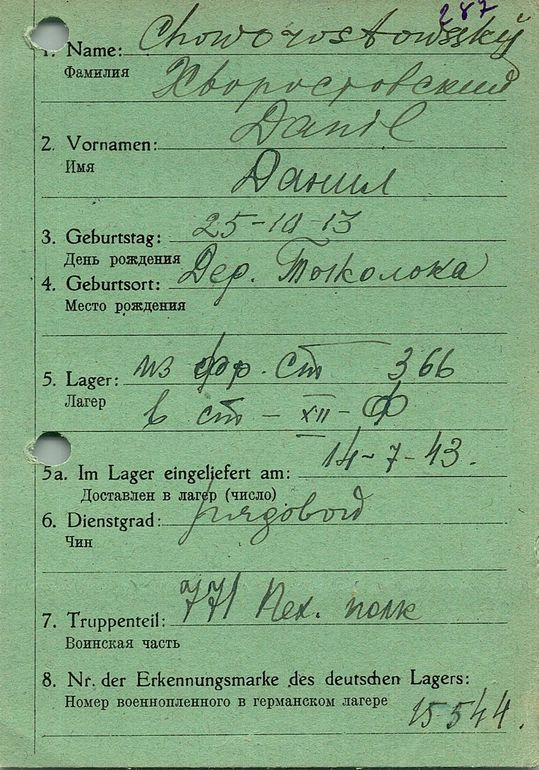 287
1. Name: Choworostowsskij
Фамилия Хворостовский
Daniel
2. Vornamen:
Имя Данил
3. Geburtstag: 25-10-13
День рождения
4. Geburtsort: Дер.
Место рождения
5. Lager: из фр. ст 366
Лагер в ст - XII - Ф
14-7-43.
5a. Im Lager eingeliefert am:
Доставлен в лагер (число)
6. Dienstgrad:
Чин
7. Truppenteil: 771 Пех. полк
Воинская часть
8. Nr. der Erkennungsmarke des deutschen Lagers:
Номер военнопленного в германском лагере 15544.